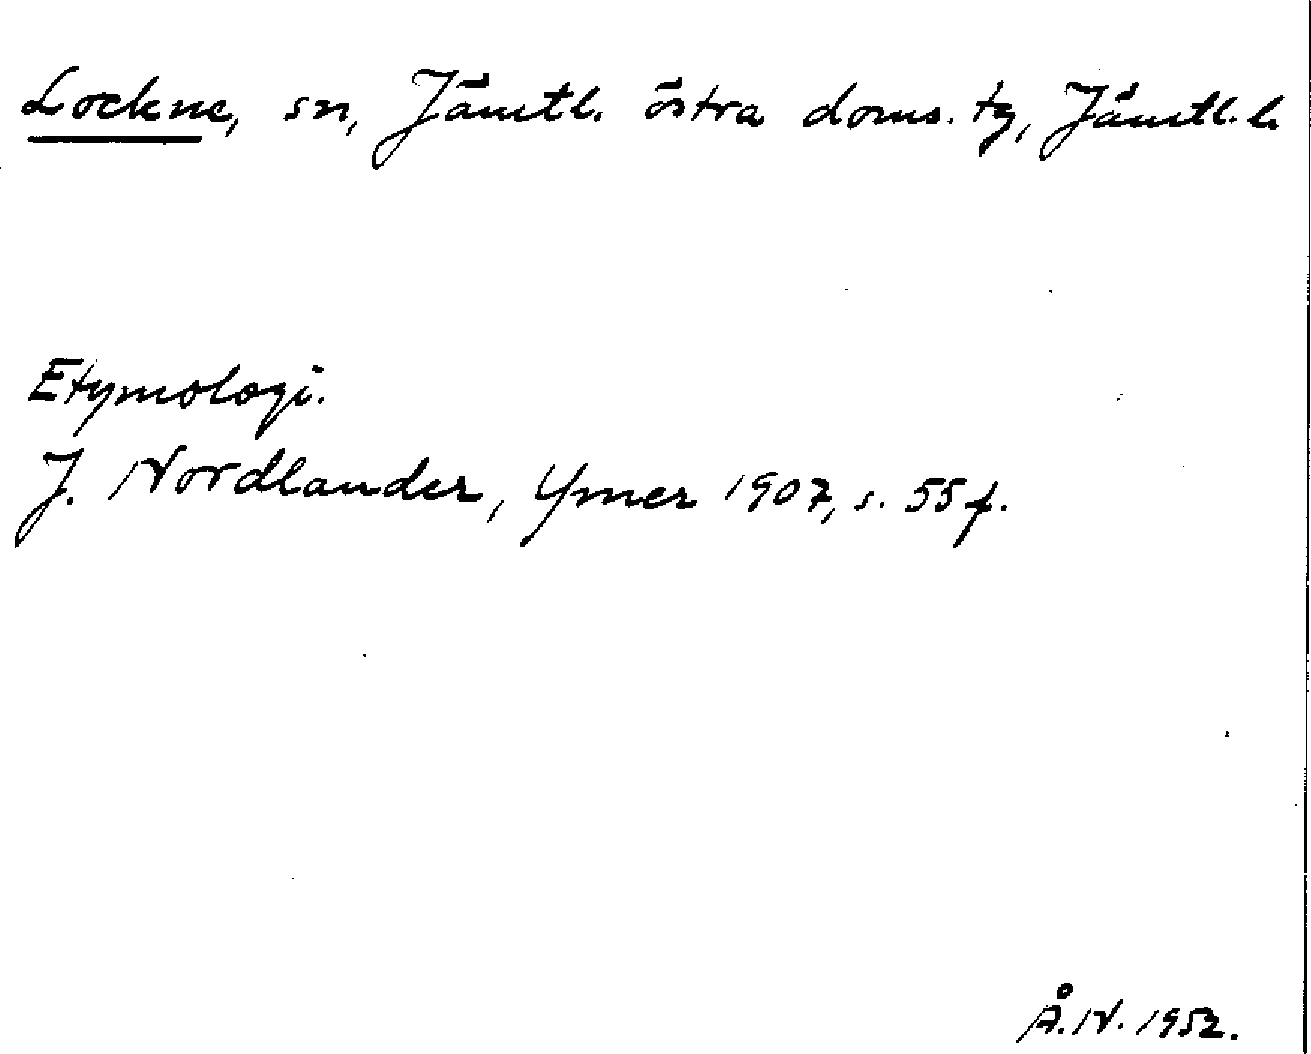 Lockne, sn, Jämtl. östra doms. tg, Jämtl. l.
Etymologi.
J. Nordlander, Ymer 1907, s. 55 f.
Å. N. 1952.